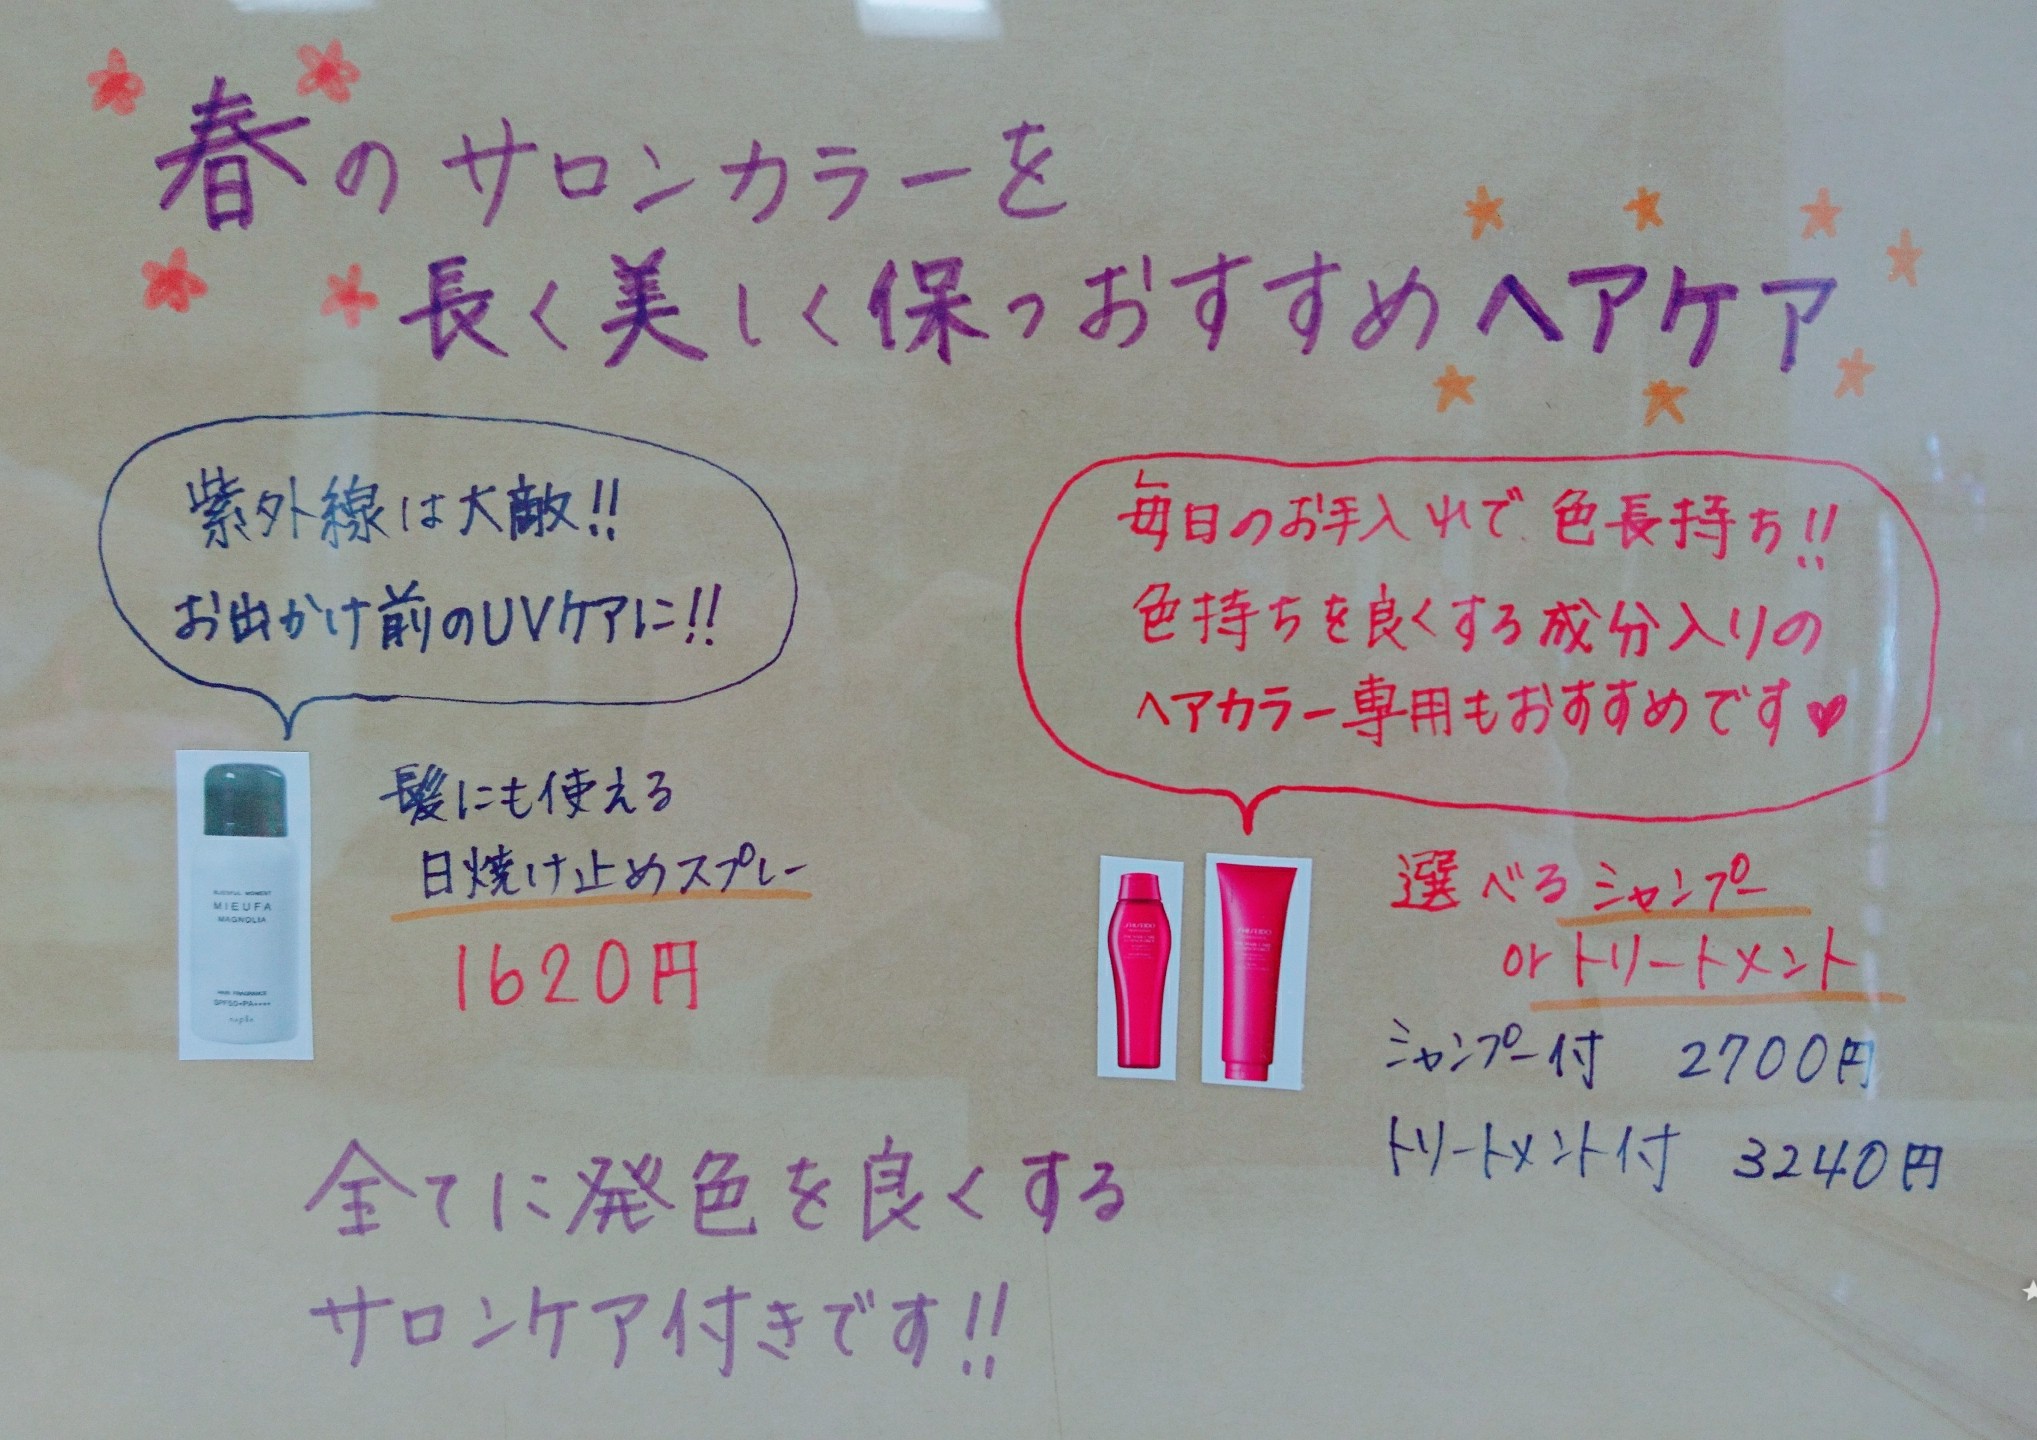 春のサロンカラーを
長く美しく保つおすすめヘアケア
紫外線は大敵!!
お出かけ前のUVケアに!!
髪にも使える
日焼け止めスプレー
1620円
MIEUFA
MAGNOLIA
毎日のお手入れで色長持ち!!
色持ちを良くする成分入りの
ヘアカラー専用もおすすめです♥
選べるシャンプー
orトリートメント
シャンプー付 2700円
トリートメント付 3240円
SHISEIDO
SHISEIDO
全てに発色を良くする
サロンケア付きです!!